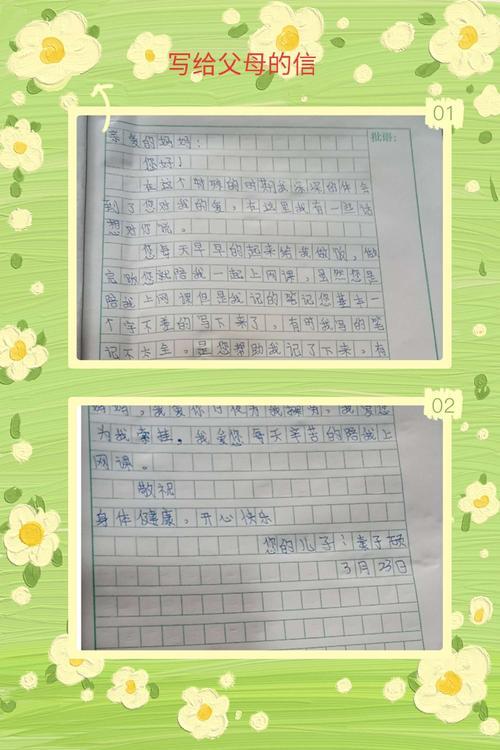 写给父母的信
01
亲爱的妈妈：
批语：
您好！
在这个特殊的时期我深深的体会
到了您对我的爱，在这里我有一些话
想对你说。
您每天早早的起来给我做饭，做
完饭您就陪我一起上网课，虽然您是
陪我上网课但是我记的笔记您基本一
个字不差的写下来了，有时我写的笔
记不太全，是您帮助我记了下来，有
02
妈妈，我爱你
为我牵挂。我爱您每天辛苦的陪我上
网课。
敬祝
身体健康，开心快乐
您的儿子：子硕
3月23日